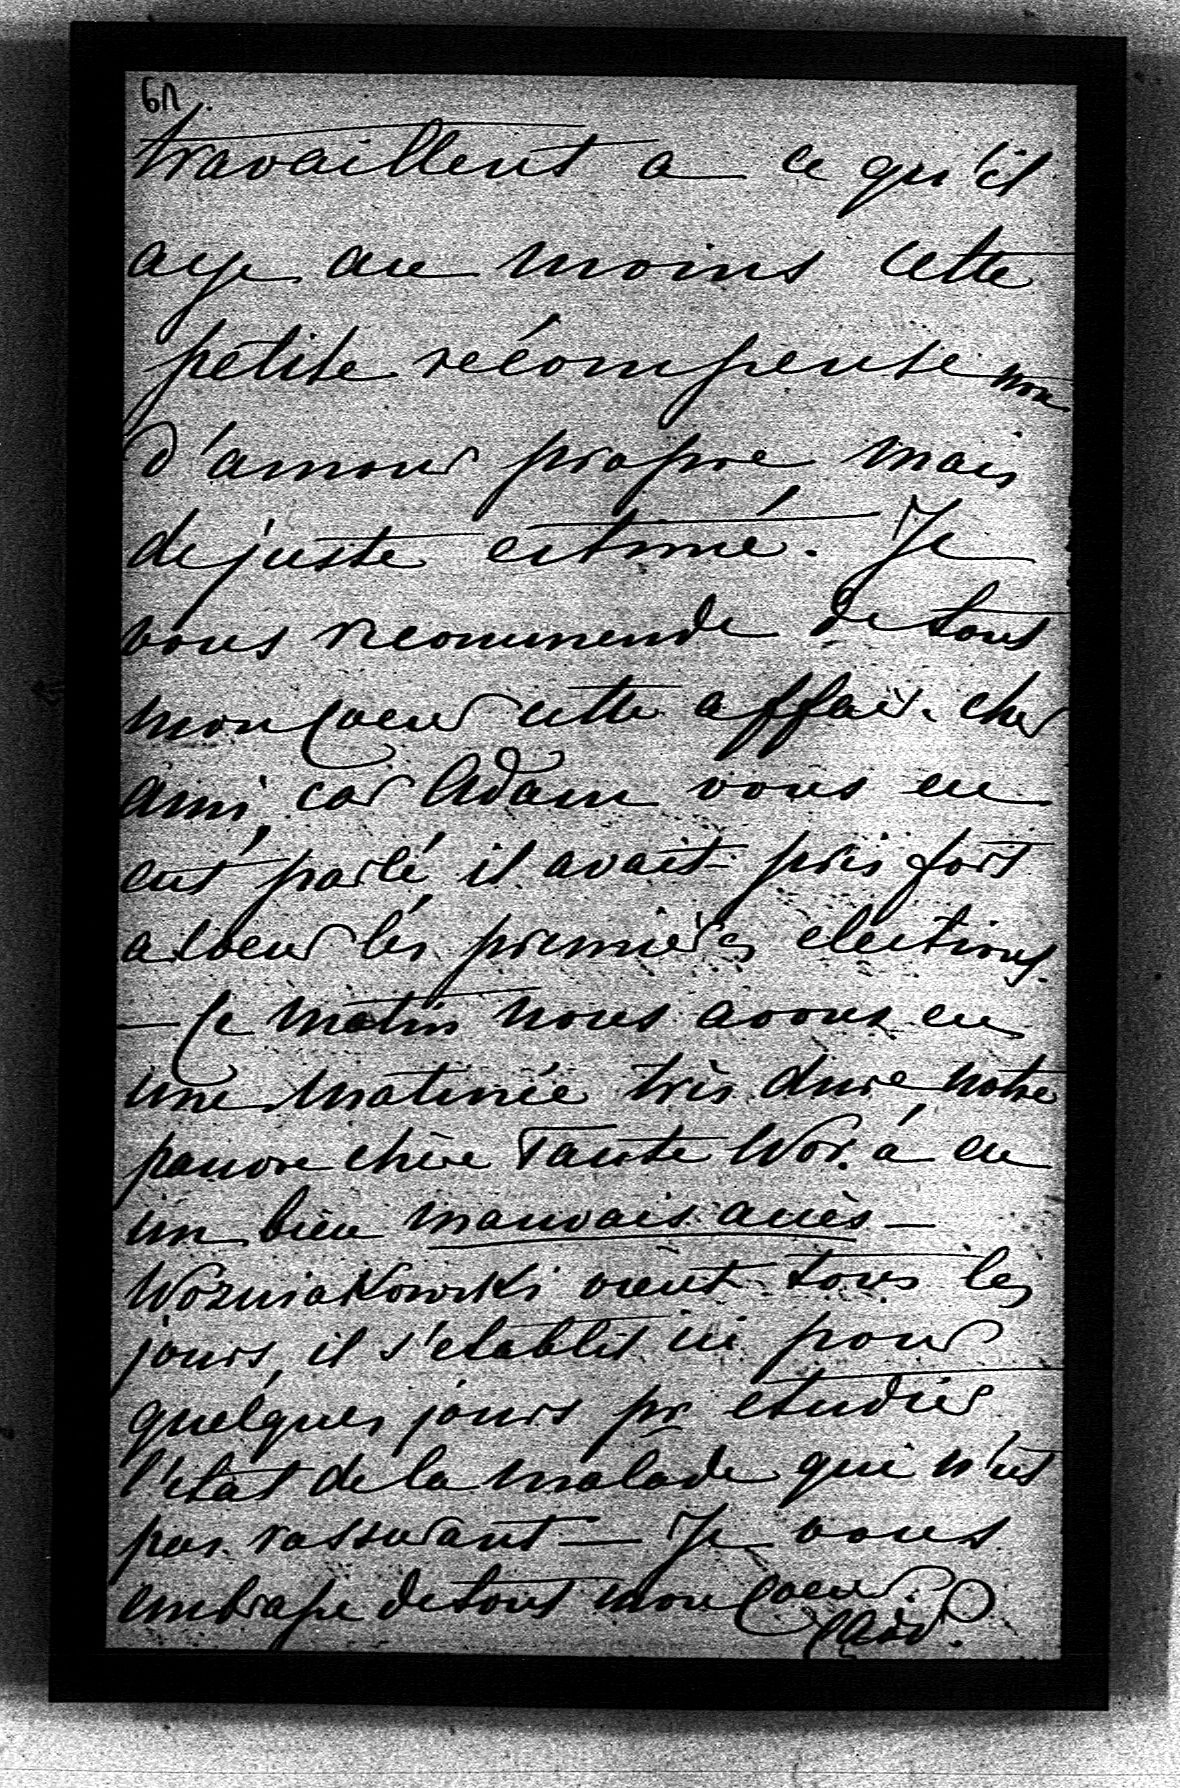 travaillent a ce qu'il
aye au moins cette
petite récompense non
d'amour propre mais
de juste estime. Je
vous recommende de tout
mon coeur cette affaire cher
ami, car Adam vous en
eut parlé il avait pris fort
a coeur les premières elections.
— Ce matin nous avons eu
une matinée très dure notre
pauvre chère Tante Wor. á eu
un bien mauvais accès —
Wozniakowski vient tous les
jours, il s'etablit ici pour
quelques jours pr etudier
l'etat de la malade qui n'est
pas rassurant — Je vous
embrasse de tout mon coeur.